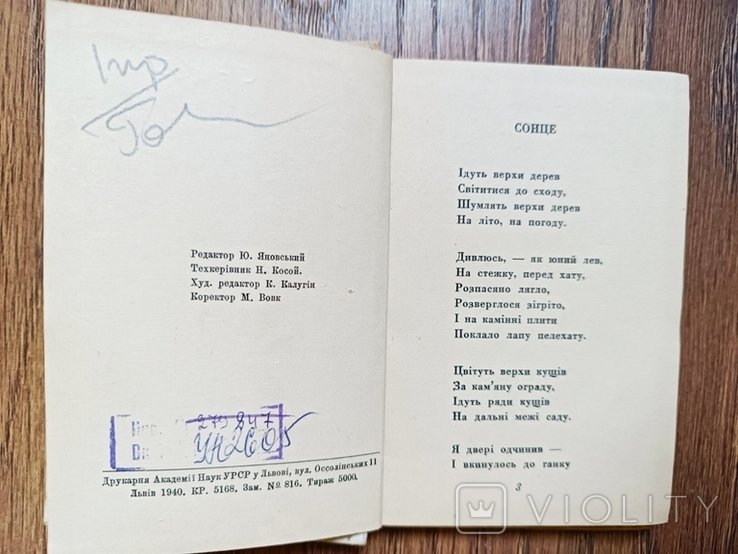 Редактор Ю. Яновський
Техкерівник Н. Косой.
Худ. редактор К. Калугін
Коректор М. Вовк
279 847
УН2605
Друкарня Академії Наук УРСР у Львові, вул. Оссолінських 11
Львів 1940. КР. 5168. Зам. № 816. Тираж 5000.
СОНЦЕ
Ідуть верхи дерев
Світитися до сходу,
Шумлять верхи дерев
На літо, на погоду.
Дивлюсь, — як юний лев,
На стежку, перед хату,
Розпасяно лягло,
Розверглося зігріто,
І на камінні плити
Поклало лапу пелехату.
Цвітуть верхи кущів
За кам'яну ограду,
Ідуть ряди кущів
На дальні межі саду.
Я двері одчинив —
І вкинулось до ганку
3
VIOLITY